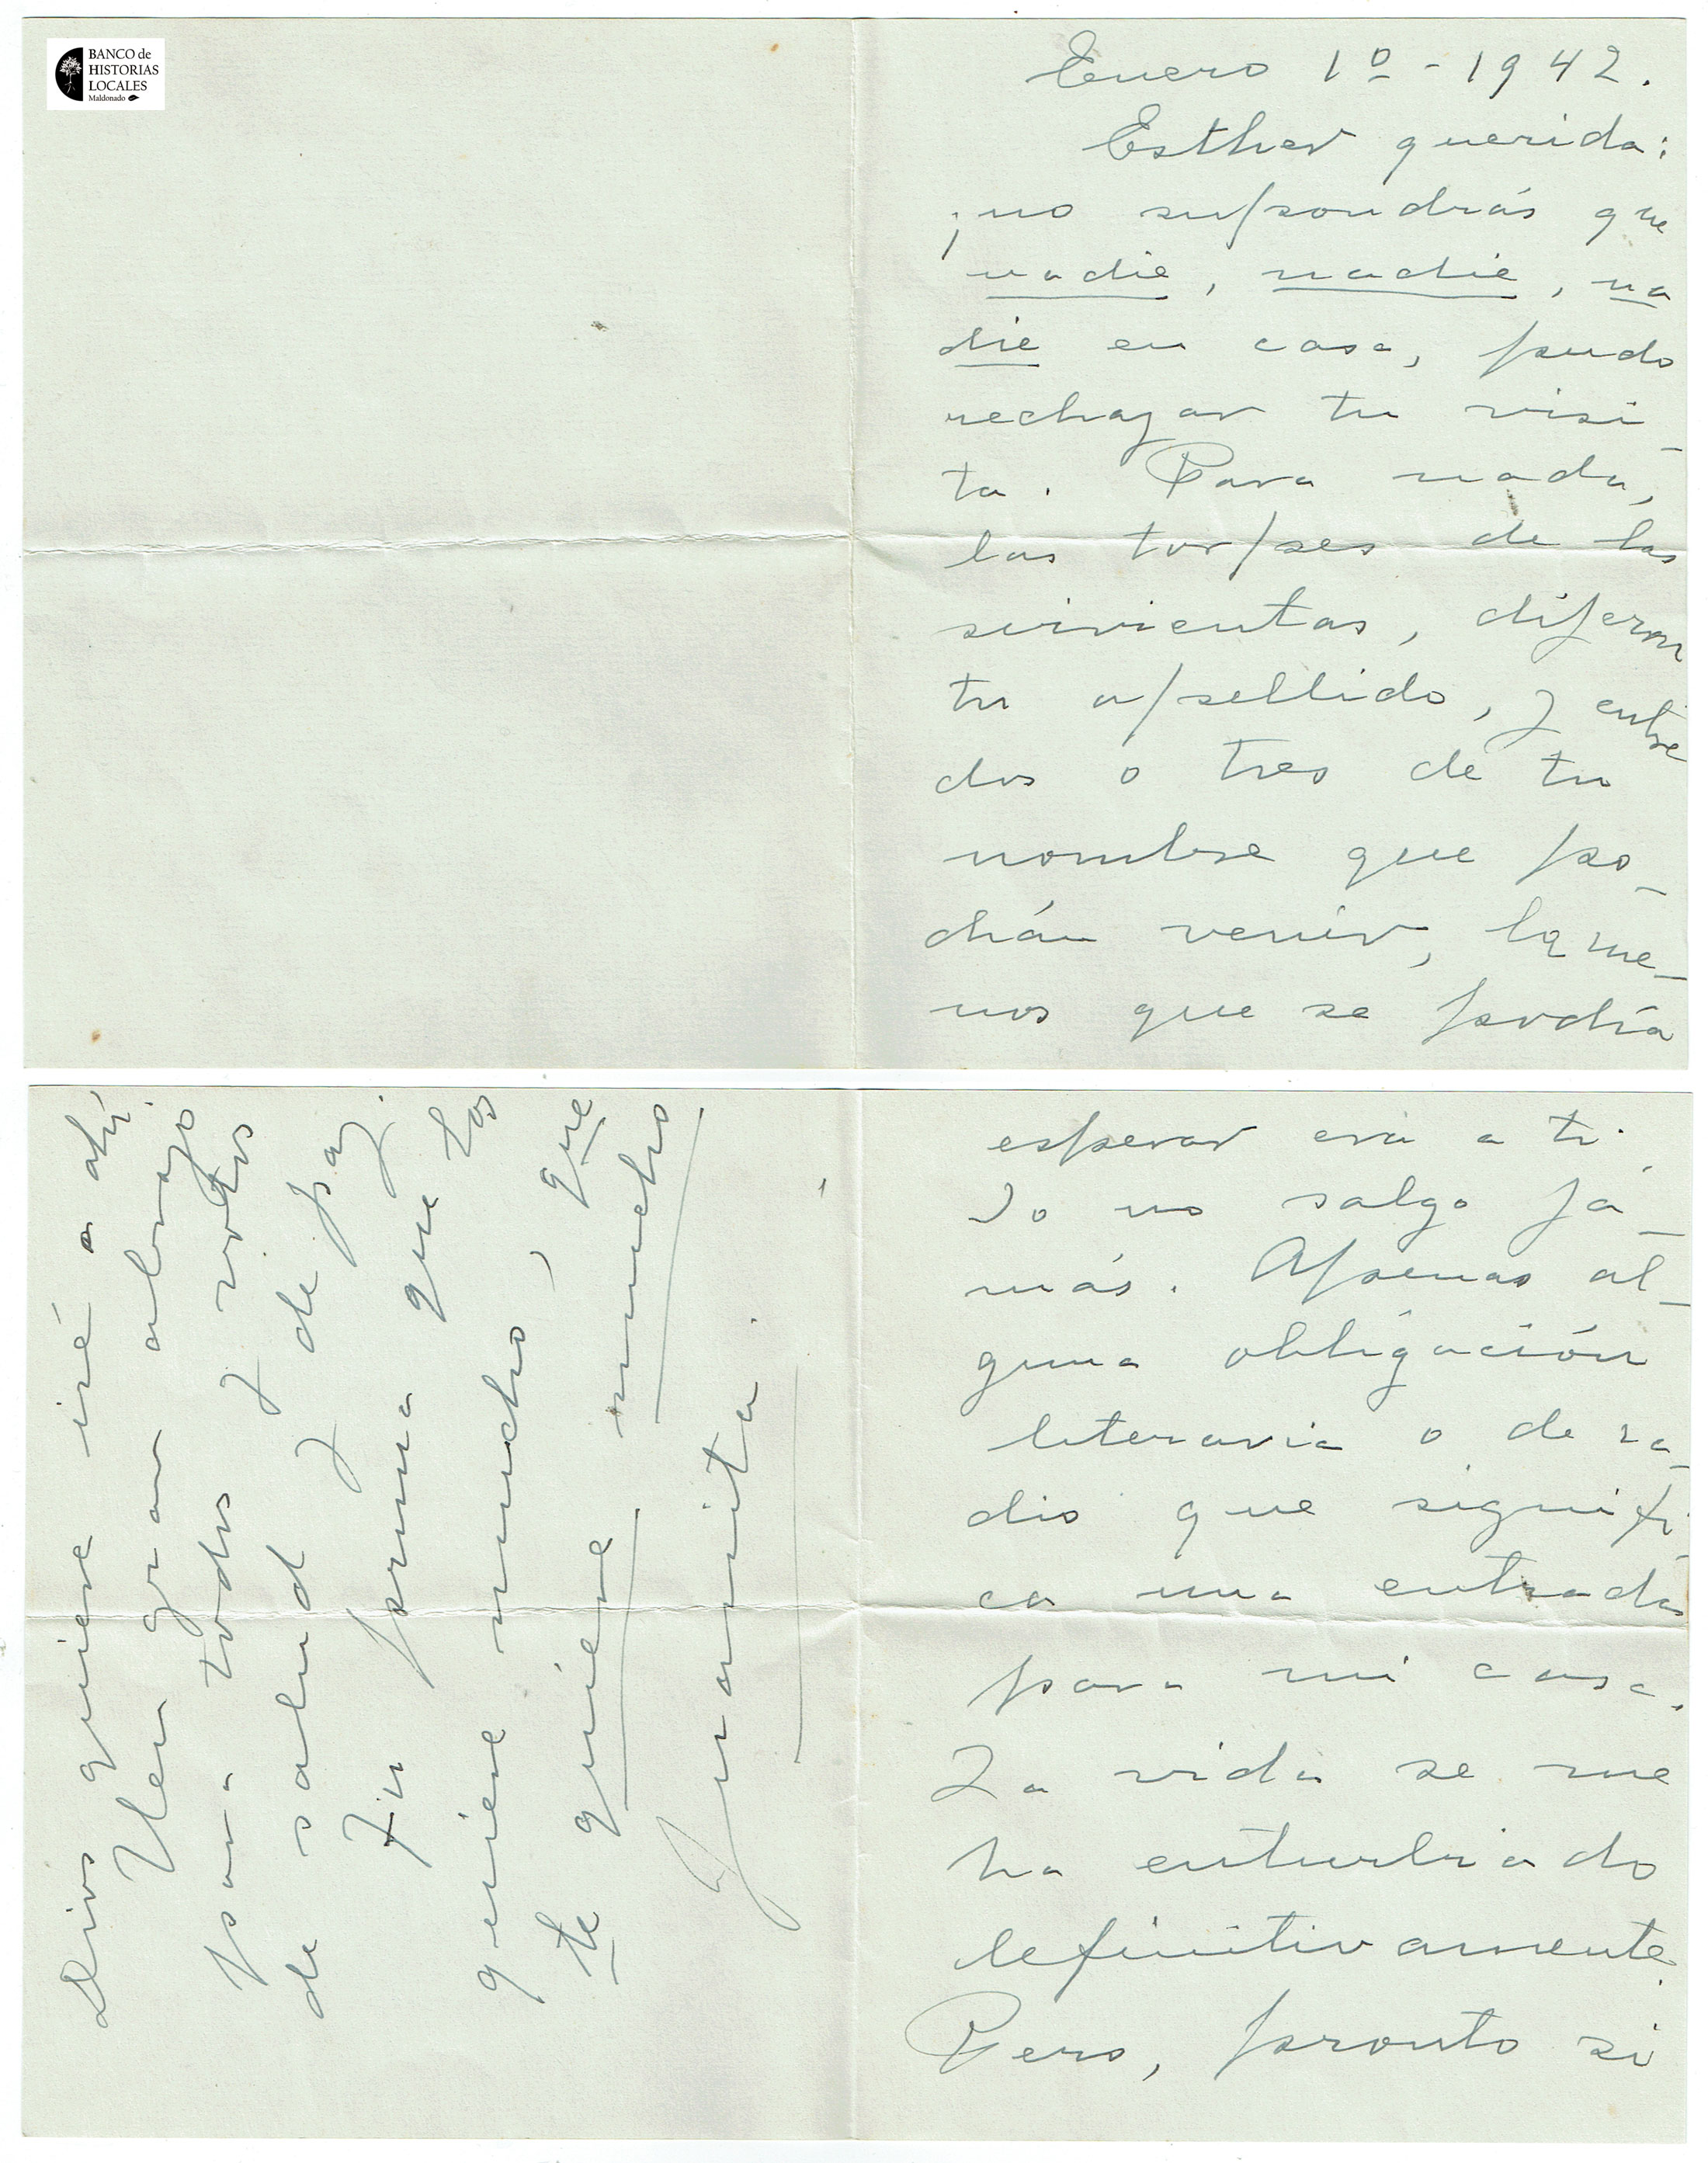 BANCO de
HISTORIAS
LOCALES
Maldonado
Enero 1º - 1942.
Esther querida:
¡no supondrás que
nadie, nadie, na
die en casa, pudo
rechazar tu visi-
ta. Para nada,
las torpes de las
sirvientas, dijeron
tu apellido, y entre
dos o tres de tu
nombre que po-
drán venir, la me-
nos que se podía
esperar era a ti.
Yo no salgo já-
más. Apenas al-
guna obligación
literaria o de ra-
dio que signifi
ca una entrada
para mi casa.
La vida se me
ha enturbiado
definitivamente.
Pero, pronto si
Dios quiere iré a ahí.
Un gran abrazo
para todos y votos
de salud y de paz.
Tu prima que las
quiere mucho, que
te quiere mucho
Juanita.